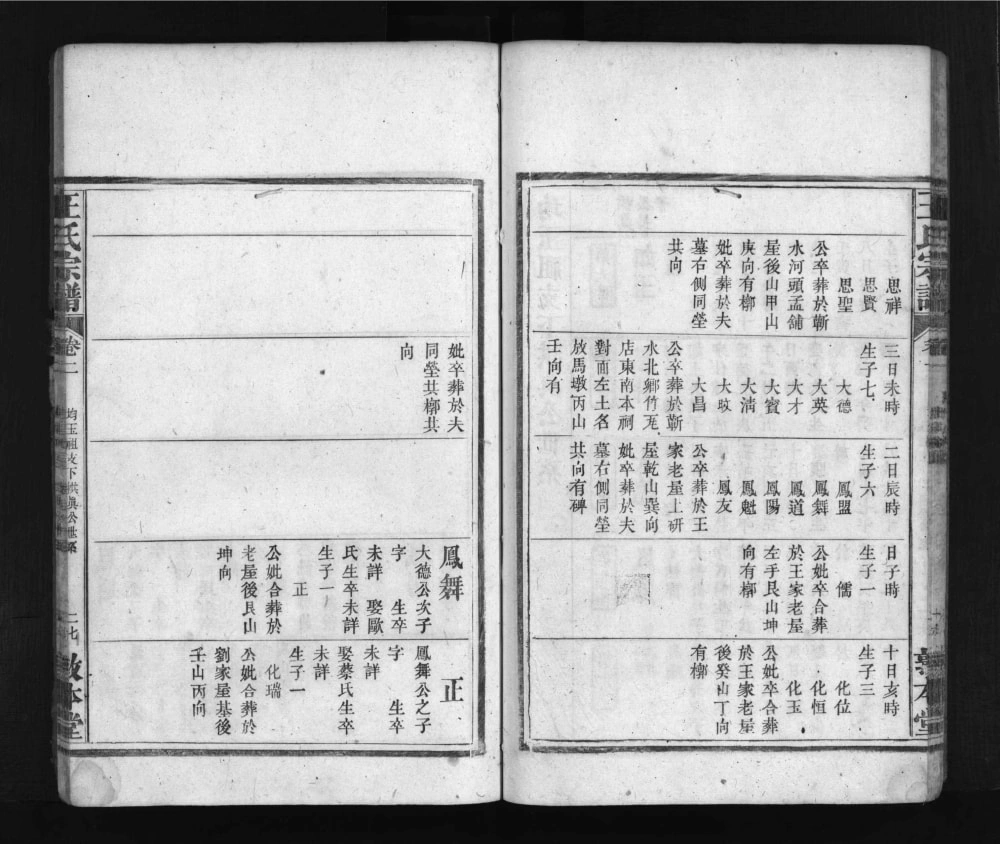 王氏宗譜
敦本堂
思祥
思賢
思聖
公卒葬於蘄
水河頭孟舖
屋後山甲山
庚向有槨
妣卒葬於夫
墓右側同塋
共向
三日未時
生子七
大德
大英
大才
大賓
大淸
大昌
公卒葬於蘄
水北鄉竹瓦
店東南本祠
對面左土名
放馬墩丙山
壬向有
二日辰時
生子六
鳳盟
鳳舞
鳳道
鳳陽
鳳魁
鳳友
公卒葬於王
家老屋上硏
屋乾山巽向
妣卒葬於夫
墓右側同塋
共向有碑
日子時
生子一
儒
公妣卒合葬
於王家老屋
左手艮山坤
向有槨
十日亥時
生子三
化位
化恒
化玉
公妣卒合葬
於王家老屋
後癸山丁向
有槨
妣卒葬於夫
同塋共槨共
向
鳳舞
大德公次子
字 生卒
未詳 娶歐
氏生卒未詳
生子一
正
公妣合葬於
老屋後艮山
坤向
正
鳳舞公之子
字 生卒
未詳
娶蔡氏生卒
未詳
生子一
化瑞
公妣合葬於
劉家屋基後
壬山丙向
王氏宗譜
卷二
均玉祖支下洪眞公世系
二七
敦本堂